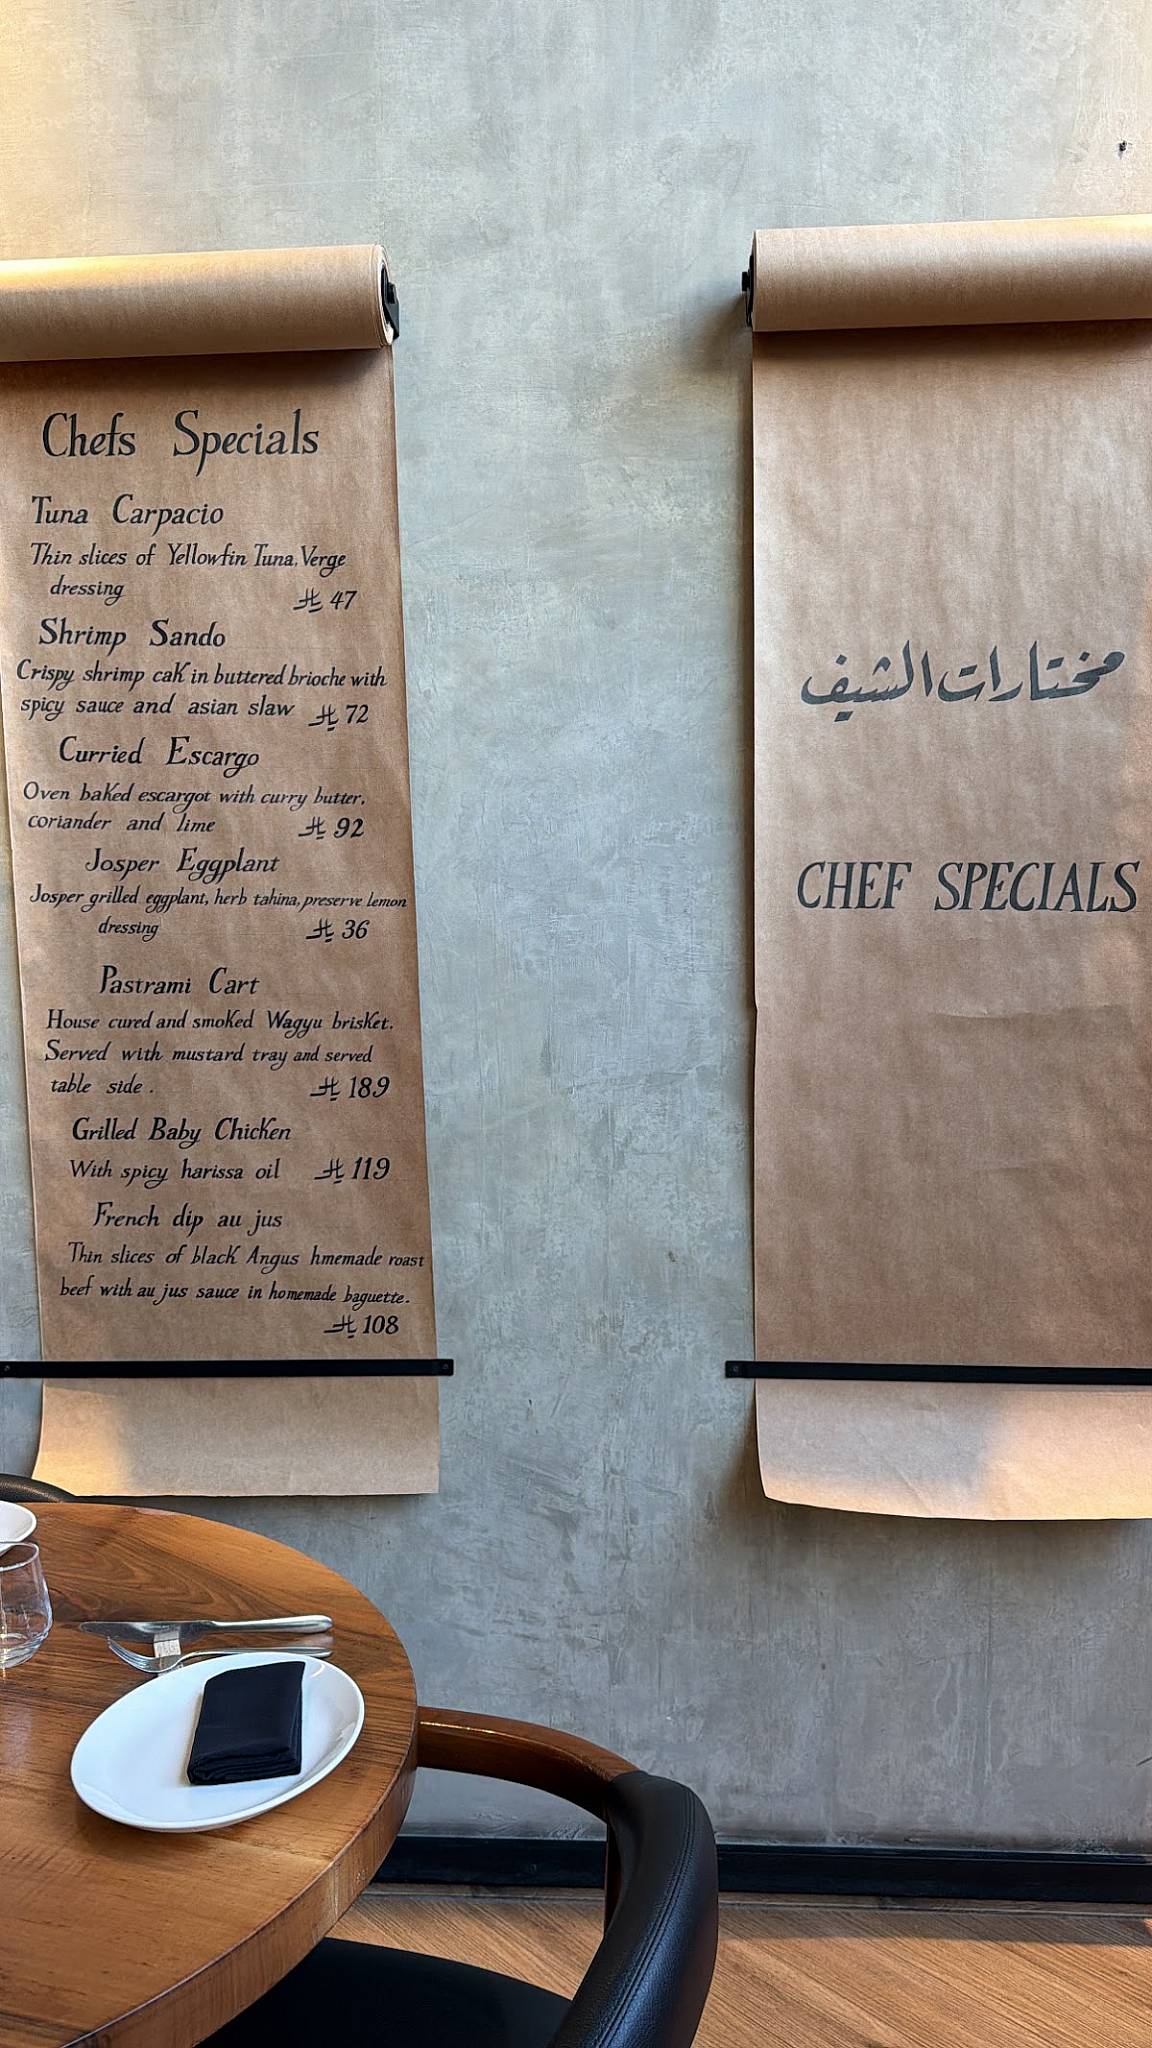 Chefs Specials
Tuna Carpacio
Thin slices of Yellowfin Tuna, Verge
dressing
⃁ 47
Shrimp Sando
Crispy shrimp cak in buttered brioche with
spicy sauce and asian slaw ⃁ 72
Curried Escargo
Oven baked escargot with curry butter,
coriander and lime ⃁ 92
Josper Eggplant
Josper grilled eggplant, herb tahina, preserve lemon
dressing ⃁ 36
Pastrami Cart
House cured and smoked Wagyu brisket.
Served with mustard tray and served
table side . ⃁ 189
Grilled Baby Chicken
With spicy harissa oil ⃁ 119
French dip au jus
Thin slices of black Angus hmemade roast
beef with au jus sauce in homemade baguette.
⃁ 108
مختارات الشيف
CHEF SPECIALS